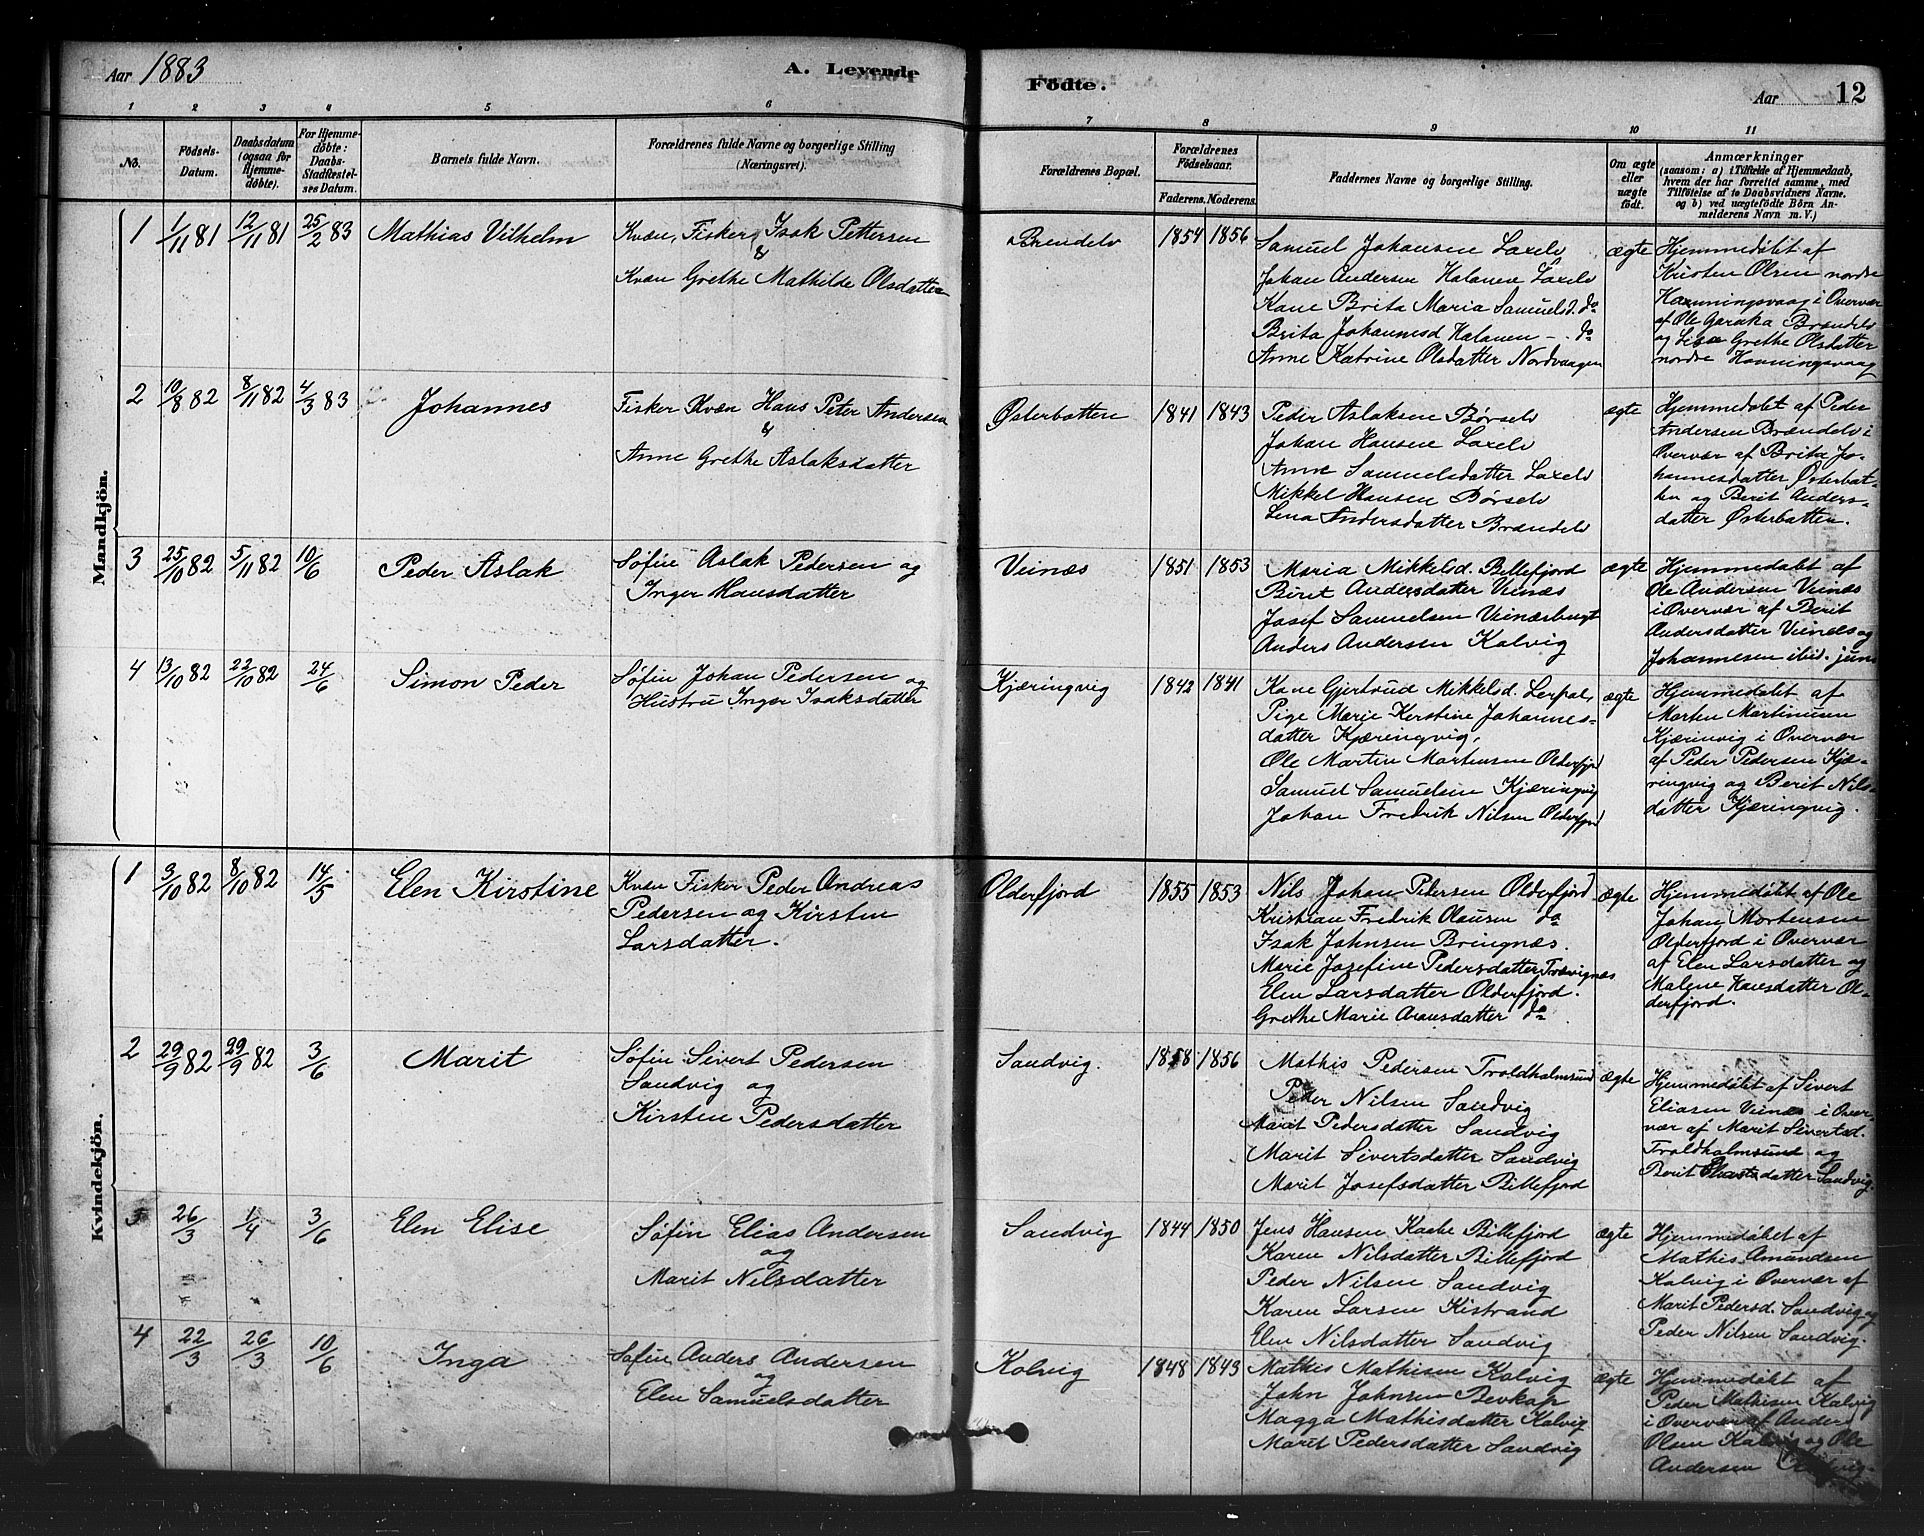 Aar 1883
A. Levende
Fødte.
Aar
12
1 2 3 4 5 6 7 8 9 10 11
No.
Fødsels-
Datum.
Daabsdatum
(ogsaa for
Hjemme-
døbte).
For Hjemme-
døbte:
Daabs-
Stadfæstel-
ses Datum.
Barnets fulde Navn.
Forældrenes fulde Navne og borgerlige Stilling
(Næringsvei).
Forældrenes Bopæl.
Forældrenes
Fødselsaar.
Faderens. Moderens.
Faddernes Navne og borgerlige Stilling.
Om ægte
eller
uægte
født.
Anmærkninger
(saasom: a) i Tilfælde af Hjemmedaab,
hvem der har forrettet samme, med
Tilføielse af to Daabsvidners Navne.
og b) ved uægtefødte Børn An-
melderens Navn m. V.)
Mandkjön.
1 1/11 81 12/11 81 25/2 83 Mathias Vilhelm
Kvæn, Fisker Isak Pettersen
&
Kvæn Grethe Mathilde Olsdatter
Brendelv 1854 1856
Samuel Johansen Laxelv
Johan Andersen Halonen Laxelv
Kone Brita Maria Samuelsd. do
Brita Johannesd Halonen - . do
Anne Katrine Olsdatter Nordvaagen
ægte
Hjemmedøbt af
Kristen Olsen nordre
Honningsvaag i Overvær
af Ole Garaka Brændelv
og Lisa Grethe Olsdatter
nordre Honningsvaag
2 10/8 82 8/11 82 4/3 83 Johannes
Fisker Kvæn Hans Peter Andersen
&
Anne Grethe Aslaksdatter
Østerbotten 1841 1843
Peder Aslaksen Børselv
Johan Hansen Laxelv
Anne Samuelsdatter Laxelv
Mikkel Hansen Børselv
Lena Andersdatter Brændelv
ægte
Hjemmedøbt af Peder
Andersen Brændelv i
Overvær af Brita Jo-
hannesdatter Østerbot-
ten og Berit Anders-
datter Østerbotten.
3 25/10 82 5/11 82 10/6 Peder Aslak
Søfin Aslak Pedersen og
Inger Hansdatter
Veinæs 1851 1853
Maria Mikkelsd. Billefjord
Beret Andersdatter Veinæs
Josef Samuelsen Veinæsbugt
Anders Andersen Kolvig
ægte
Hjemmedøbt af
Ole Andersen Veinæs
i Overvær af Berit
Andersdatter Veinæs og
Johannesen ibid. jun.
4 13/10 82 22/10 82 24/6 Simon Peder
Søfin Johan Pedersen og
Hustru Inger Isaksdatter
Kjæringvig 1842 1841
Kone Gjertrud Mikkelsd. Lerpol,
Pige Marie Kerstine Johannes-
datter Kjæringvig,
Ole Martin Mortensen Olderfjord
Samuel Samuelsen Kjæringvig
Johan Fredrik Nilsen Olderfjord
ægte
Hjemmedøbt af
Morten Martinusen
Kjærinvig i Overvær
af Peder Pedersen Kjæ-
ringvig og Berit Nils-
datter Kjæringvig.
Kvindekjön.
1 3/10 82 8/10 82 14/5 Elen Kirstine
Kvæn Fisker Peder Andreas
Pedersen og Kirsten
Larsdatter.
Olderfjord 1855 1853
Nils Johan Petersen Olderfjord
Kristian Fredrik Olausen do
Isak Johnsen Bringnæs.
Marie Josefine Pedersdatter Trævignæs
Elen Larsdatter Olderfjord.
Grethe Marie Aronsdatter do
ægte
Hjemmedøbt af Ole
Johan Mortensen
Olderfjord i Overvær
af Elen Larsdatter og
Malene Hansdatter Ol-
derfjord.
2 29/9 82 29/9 82 3/6 Marit
Søfin Sivert Pedersen
Sandvig og
Kirsten Pedersdatter
Sandvig. 1858 1856
Mathis Pedersen Troldholmsund
Peder Nilsen Sandvig
Marit Pedersdatter Sandvig
Marit Sivertsdatter Sandvig
Marit Josefsdatter Billefjord
ægte
Hjemmedøbt af Sivert
Eliasen Veinæs i Over-
vær af Marit Sivertsd.
Troldholmsund og
Berit datter Sandvig.
3 26/3 1/4 3/6 Elen Elise
Søfin Elias Andersen
og
Marit Nilsdatter
Sandvig 1844 1850
Jens Hansen Kaabe Billefjord
Karen Nilsdatter Billefjord
Peder Nilsen Sandvig
Karen Larsen Kistrand
Elen Nilsdatter Sandvig
ægte
Hjemmedøbt af
Mathis Amundsen
Kolvig i Overvær af
Marit Pedersd. Sandvig og
Peder Nilsen Sandvig.
4 22/3 26/3 10/6 Inga
Søfin Anders Andersen
og
Elen Samuelsdatter
Kolvig 1848 1843
Mathis Mathisen Kolvig
John Johnsen Bevkop
Magga Mathisdatter Kolvig
Marit Pedersdatter Sandvig
ægte
Hjemmedøbt af
Peder Mathisen Kolvig
i Overvær af Anders
Olsen Kolvig og Ole
Andersen Kolvig.